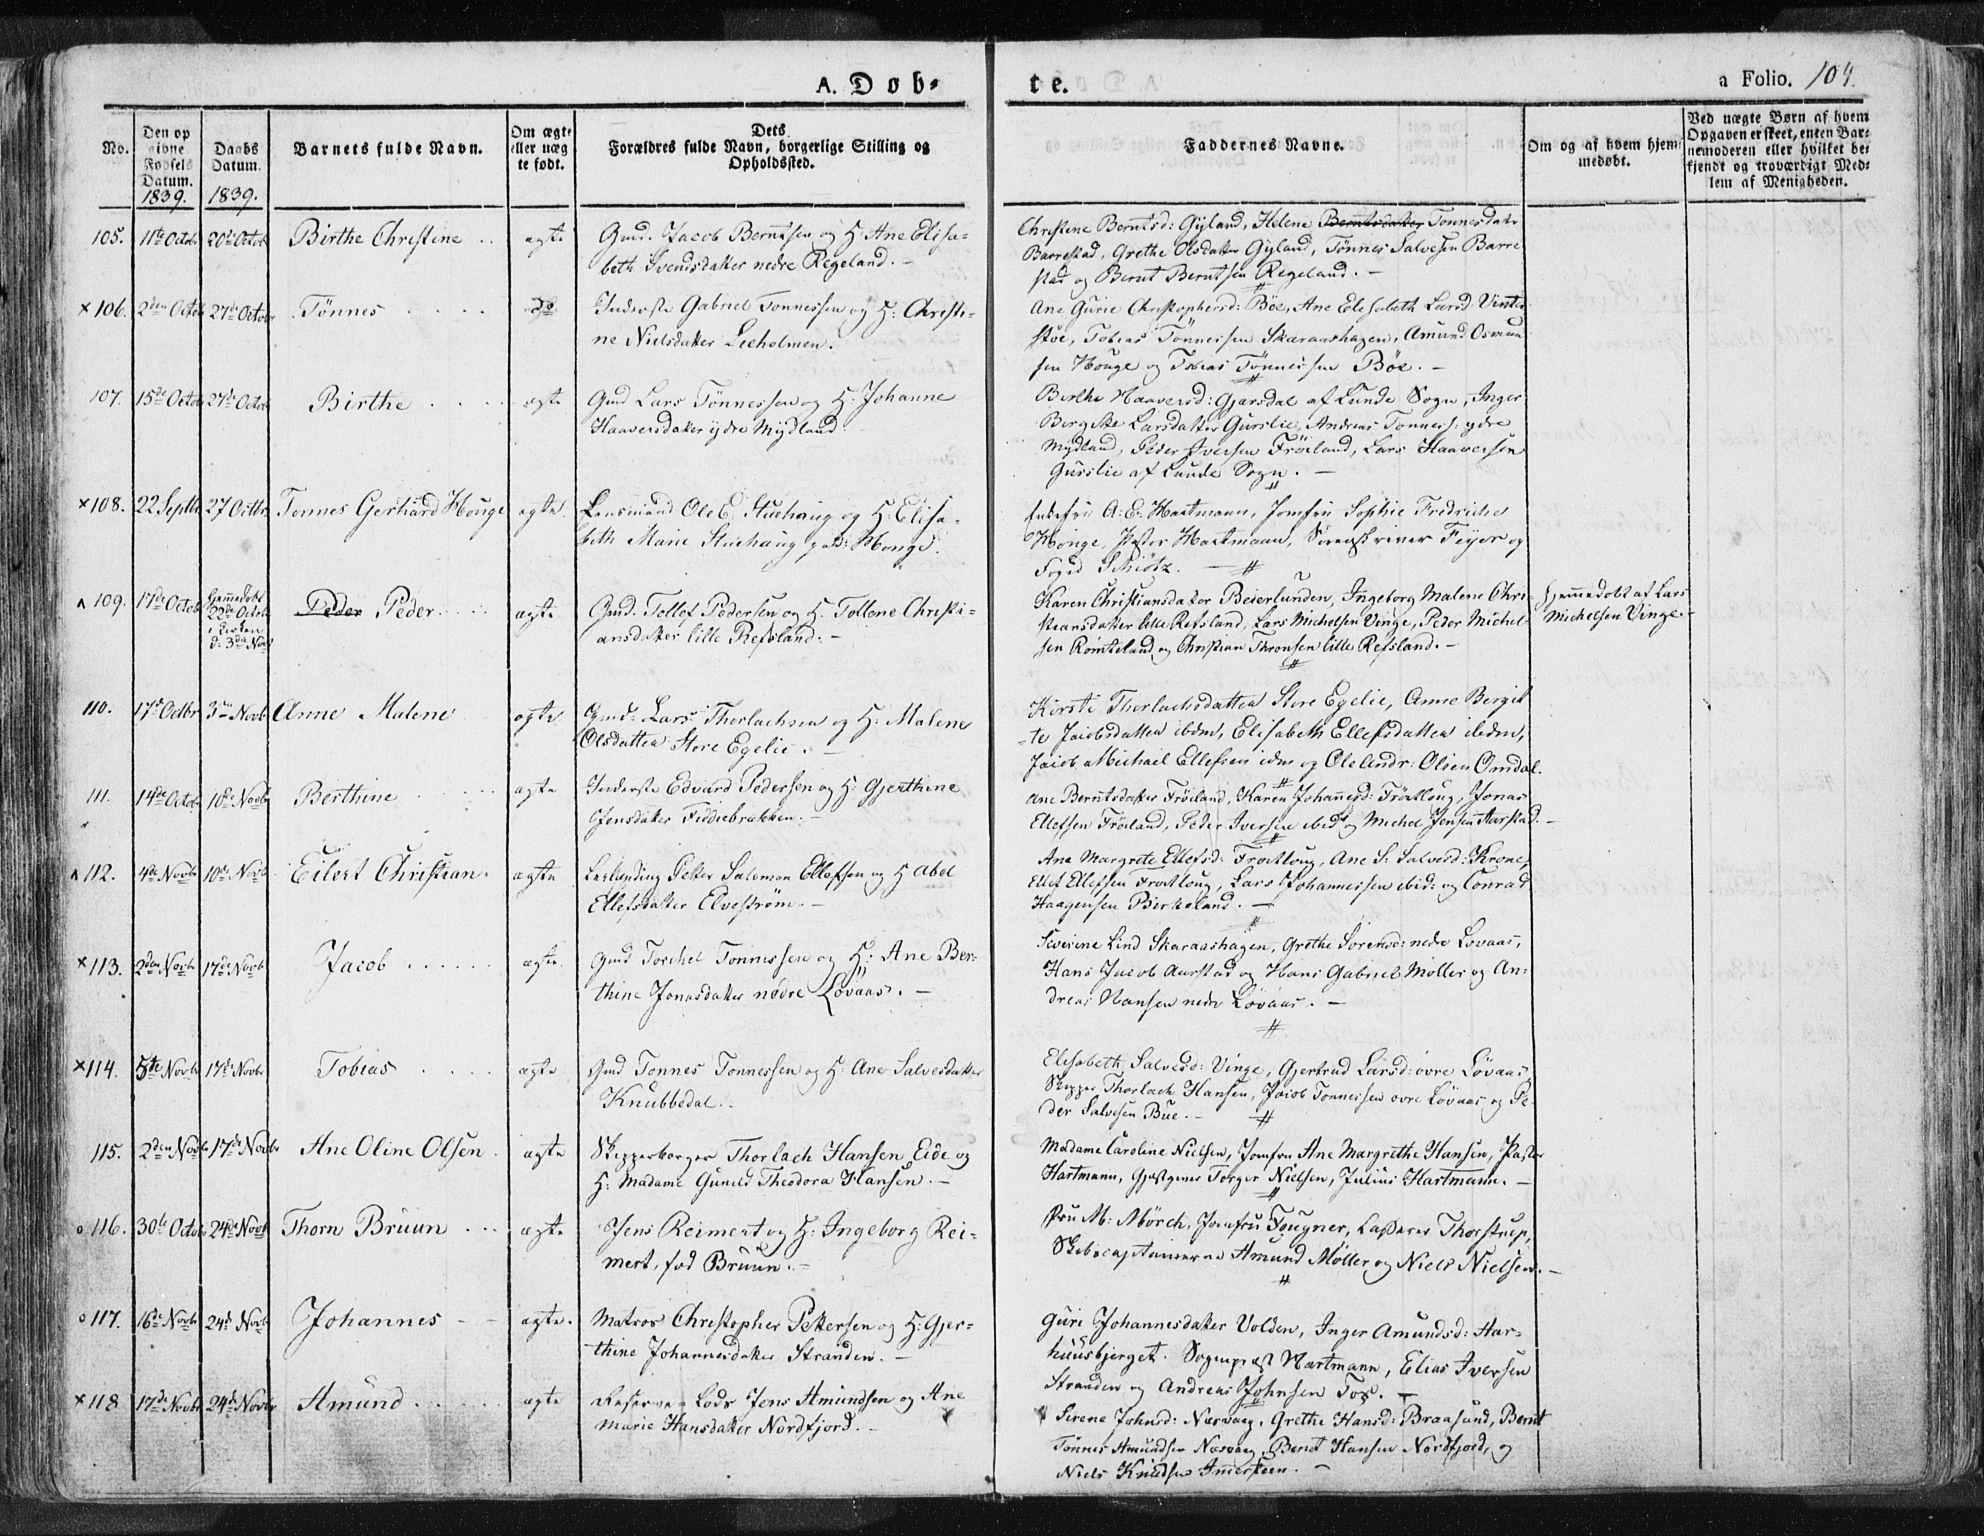 A. Døb-
te.
a Folio. 104.
No.
Den op givne Fødsels Datum. 1839.
Daabs Datum. 1839.
Barnets fulde Navn.
Om ægte eller uægte født.
Dets Forældres fulde Navn, borgerlige Stilling og Opholdssted.
Faddernes Navne.
Om og af hvem hjemmedøbt.
Ved uægte Børn af hvem Opgaven er skeet, enten Barnemoderen eller hvilket bekjendt og troværdigt Medlem af Menigheden.
105. 11te Octob 20de Octob Birthe Christine ægte Gmd. Jacob Berntsen og H: Ane Elisa-
beth Svendsdatter nedre Regeland. -
Christine Berntsd: Gyland, Helene Berntsdatter Tönnesdatr
Barrestad, Grethe Olsdatter Gyland, Tönnes Salvesen Barre
stad og Bernt Berntsen Regeland. -
×106. 2den Octob 27de Octobr Tönnes do Inderste Gabriel Tönnessen og H: Christi-
ne Nielsdatter Leeholmen.
Ane Gurie Christophersd: Böe, Ane Elisabeth Larsd Vinter
stöe, Tobias Tönnessen Skaraashagen, Amund Osmun
sen Houge og Tobias Tönnessen Böe. -
107. 15de Octob 27de Octob Birthe ægte Gmd Lars Tönnessen og H: Johanne
Haaversdatter ydre Mydland
Birthe Haaversd: Gjersdal af Lunde Sogn, Inger
Birgitte Larsdatter Gurslie, Andreas Tönnes: ydre
Mydland, Peder Iversen Fröiland, Lars Haaversen
Gurslie af Lunde Sogn. -
×108. 22 Septbr 27 Octbr Tönnes Gerhard Houge ægte Lensmand Ole E. Stuehaug og H: Elisa-
beth Marie Stuehaug, fød: Honge.
Enkefru A: E: Hartmann, Jomfru Sophie Fredriche
Honge, Pastor Hartmann, Sorenskriver Feyer og
Foged Schiötz. -
109. 17de Octob Hjemmedøbt 22de Octob i Kirken d: 3de Nov Peder Peder ægte Gmd. Tollof Pedersen og H. Tollene Christi-
ansdatter lille Refsland. -
Karen Christiansdatter Beierlunden, Ingeborg Malene Chri-
stiansdatter lille Refsland, Lars Michelsen Vinge, Peder Michel-
sen Römteland og Christian Thronsen lille Refsland. -
Hjemmedøbt af Lars
Michelsen Vinge. -
110. 17de Octbr 3die Novb Anne Malene ægte Gmd: Lars Therlachsen og H: Malene
Olsdatter Store Egelie. -
Kirsti Therlachsdatter Store Egelie, Anne Bergit
te Jacobsdatter ibdm, Elisabeth Ellefsdatter ibdm,
Jacob Michael Ellefsen idm og Ole Andr: Olsen Omdal.
111. 14de Octob 10de Novbr Berthine ægte Inderste Edvard Pedersen og H: Gjerthine
Jensdatter Fiddiebrækken. -
Ane Berntsdatter Fröiland, Karen Johannesd: Fröitloug, Jonas
Ellefsen Fröiland, Peder Iversen ibid og Michel Jensen Aarstad. -
112. 4de Novbr 10de Novb Eilert Christian ægte Petter Salomon Ellefsen og H Abel
Ellefsdatter Elveström. -
Ane Margrete Ellefsd: Froitloug, Ane S: Salvesd: Krone,
Ellef Ellefsen Froitloug, Lars Johannessen ibid: og Conrad
Haagensen Birkeland. -
×113. 2den Novbr 17de Novb Jacob ægte Gmd Torchel Tönnessen og H: Ane Ber-
thine Jonasdatter nedre Lövaas. -
Severine Lind Skaraashagen, Grethe Sörensd: nedre Lovaas,
Hans Jacob Aarstad og Hans Gabriel Möller og An-
dreas Hansen nedre Lövaas. -
×114. 5te Novbr 17de Novbr Tobias ægte Gmd Tonnes Tonnessen og H: Ane Salvesdatter
Knubbedal. -
Elisabeth Salvesd: Vinge, Gjertrud Larsd: övre Lövaas
Skipper Thorlach Hansen, Jacob Tonnessen ovre Lövaas og Pe
der Salvesen Bue. -
115. 2den Novbr 17de Novbr Ane Oline Olsen ægte Skipperborger Thorlach Hansen Eide og
H: Madame Guneld Theodora Hansen. -
Madame Caroline Nielsen, Jomfru Ane Margrethe Hansen, Pastor
Hartmann, Gjestgever Torger Nielsen, Julius Hartmann. -
o 116. 30te Octob 24de Novb Thorn Bruun ægte Jens Reimert og H: Ingeborg Rei-
mert, fød Bruun. -
Fru M: Mörch, Jomfru Fougner, Thorstrup,
Skibscaptainerne Amund Möller og Niels Nielsen. -
o 117. 16de Novbr 24de Novb Johannes ægte. Matros Christopher Pettersen og H: Gjer-
thine Johannesdatter Stranden. -
Guri Johannesdatter Volden, Inger Amundsd: Aar-
huusbjerget. Sogneprest Hartmann, Elias Iversen
Stranden og Andreas Johnsen Fos. -
×118 17de Novbr 24de Novbr Amund ægte Reserve-Lods Jens Amundsen og Ane
Marie Hansdatter Nordfjord. -
Serene Johnsd: Næsvaag, Grethe Hansd: Braasund, Bernt
Tönnes Amundsen Næsvaag, Berent Hansen Nordfjord, og
Niels Knudsen Immersteen. -